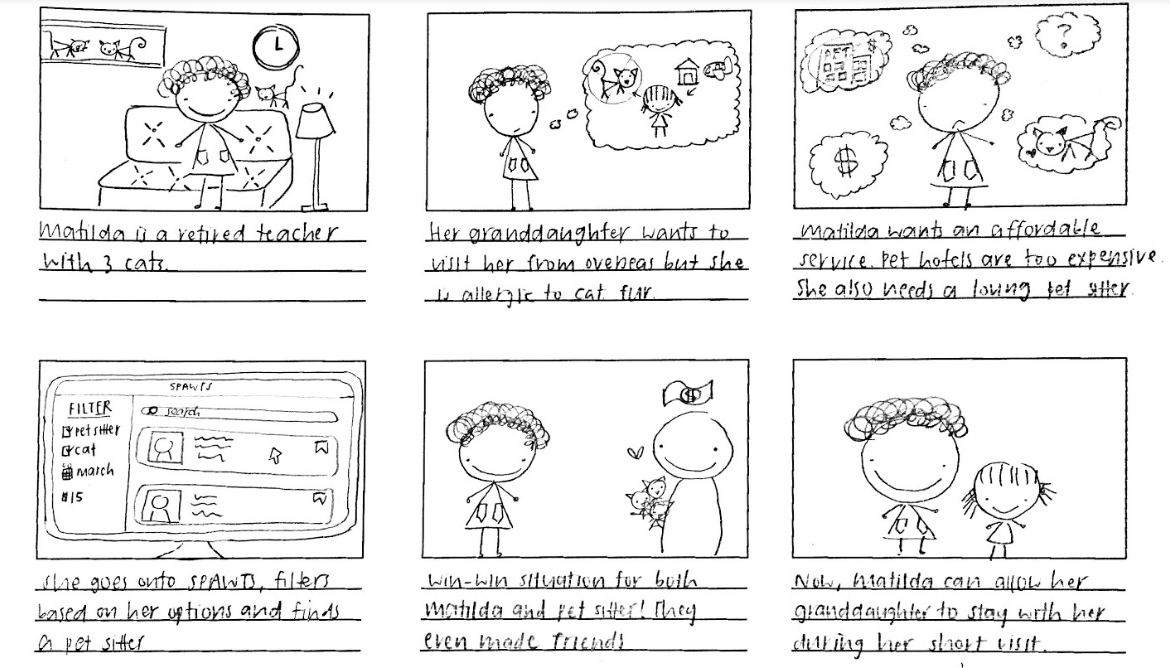 Matilda is a retired teacher
with 3 cats.
Her granddaughter wants to
visit her from overseas but she
is allergic to cat fur.
$
?
$
Matilda wants an affordable
service. Pet hotels are too expensive.
She also needs a loving pet sitter.
SPAWTS
FILTER
pet sitter
cat
march
$15
search
She goes onto SPAWTS, filters
based on her options and finds
a pet sitter
$
Win-win situation for both
Matilda and pet sitter! They
even made friends
Now, Matilda can allow her
granddaughter to stay with her
during her short visit.